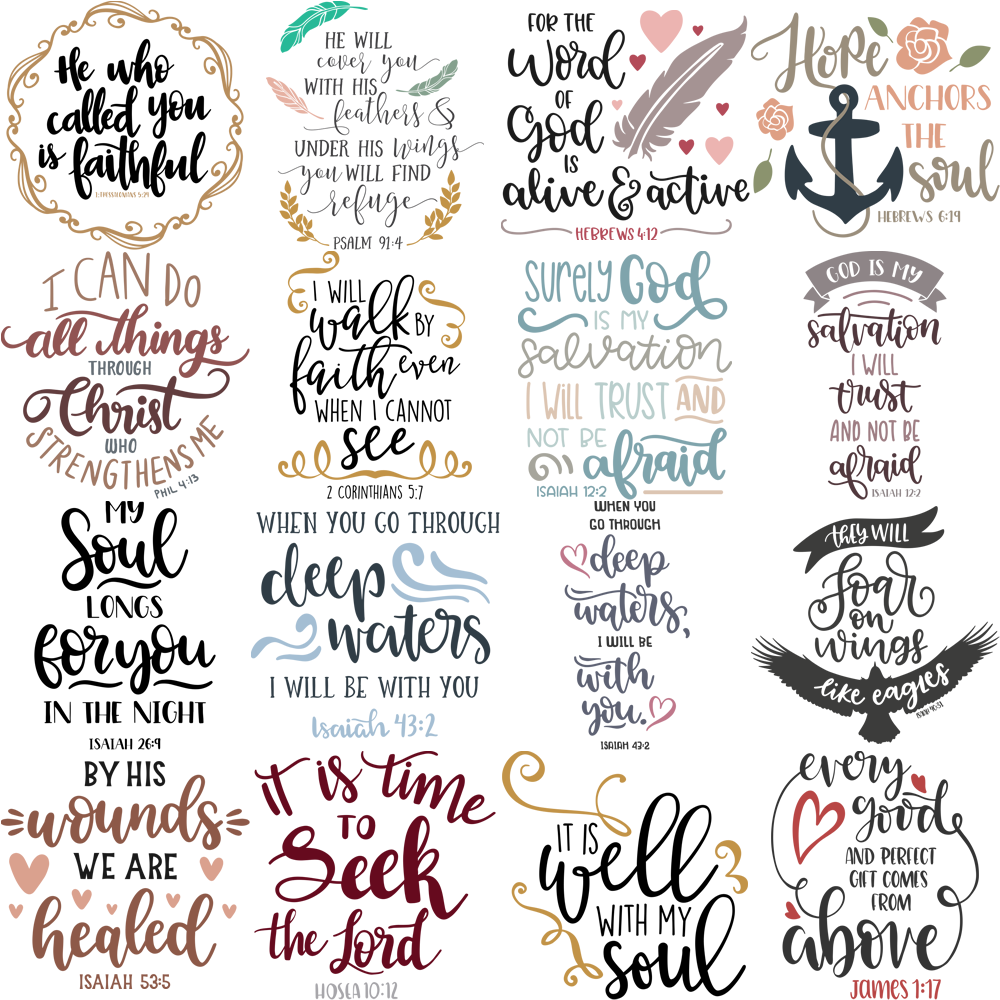 He who
called you
is faithful
1 THESSALONIANS 5:24
HE WILL
cover you
WITH HIS
feathers &
UNDER HIS wings
you WILL FIND
refuge
PSALM 91:4
FOR THE
Word
OF
God
IS
alive & active
HEBREWS 4:12
Hope
ANCHORS
THE
soul
HEBREWS 6:19
I CAN DO
all things
THROUGH
Christ
WHO
STRENGTHENS ME
PHIL 4:13
I WILL
walk BY
faith even
WHEN I CANNOT
see
2 CORINTHIANS 5:7
SURELY God
IS MY
salvation
I WILL TRUST AND
NOT BE
afraid
ISAIAH 12:2
GOD IS MY
salvation
I WILL
trust
AND NOT BE
afraid
ISAIAH 12:2
MY
Soul
LONGS
for you
IN THE NIGHT
ISAIAH 26:9
WHEN YOU GO THROUGH
deep
waters
I WILL BE WITH YOU
Isaiah 43:2
WHEN YOU
GO THROUGH
deep
waters,
I WILL BE
with
you.
ISAIAH 43:2
they WILL
Soar
on
wings
like eagles
ISAIAH 40:31
BY HIS
wounds
WE ARE
healed
ISAIAH 53:5
it is time
TO
Seek
the Lord
HOSEA 10:12
IT IS
well
WITH MY
soul
every
good
AND PERFECT
GIFT COMES
FROM
above
James 1:17